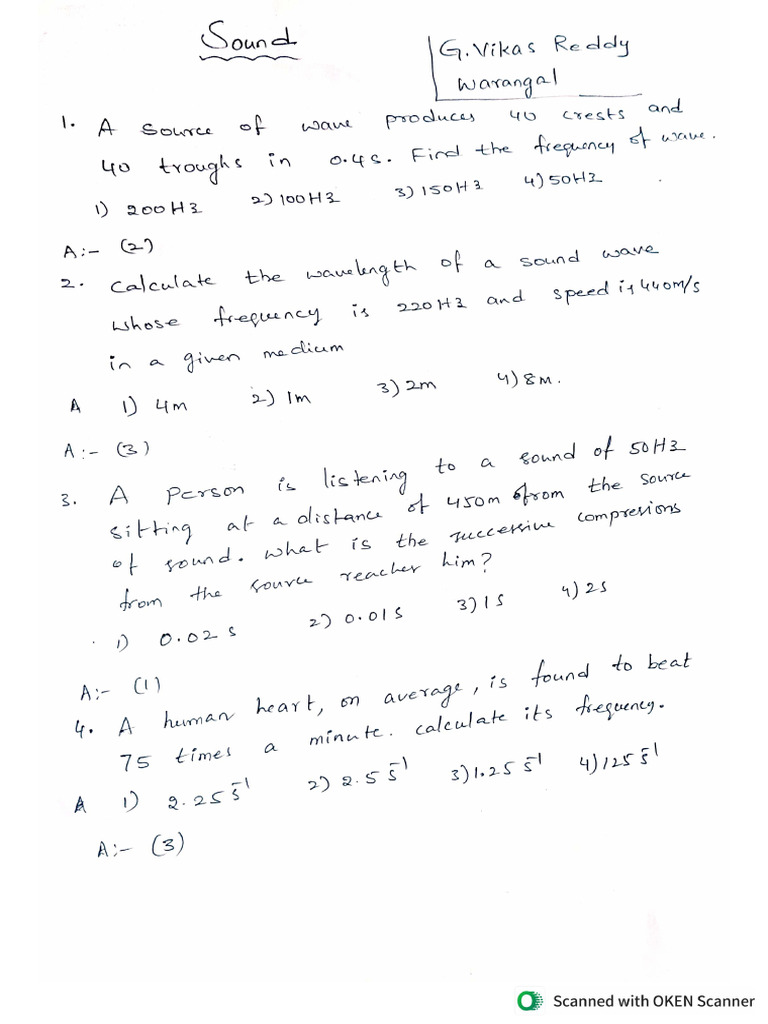 Sound
G. Vikas Reddy
Warangal
1. A source of wave produces 40 crests and
40 troughs in 0.4s. Find the frequency of wave.
1) 200Hz 2) 100Hz 3) 150Hz 4) 50Hz
A:- (2)
2. Calculate the wavelength of a sound wave
whose frequency is 220Hz and speed is 440m/s
in a given medium
A 1) 4m 2) 1m 3) 2m 4) 8m.
A:- (3)
3. A person is listening to a sound of 50Hz
sitting at a distance of 450m from the source
of sound. What is the successive compresions
from the source reaches him?
1) 0.02s 2) 0.01s 3) 1s 4) 2s
A:- (1)
4. A human heart, on average, is found to beat
75 times a minute. calculate its frequency.
A 1) 2.25 s⁻¹ 2) 2.5 s⁻¹ 3) 1.25 s⁻¹ 4) 125 s⁻¹
A:- (3)
Scanned with OKEN Scanner